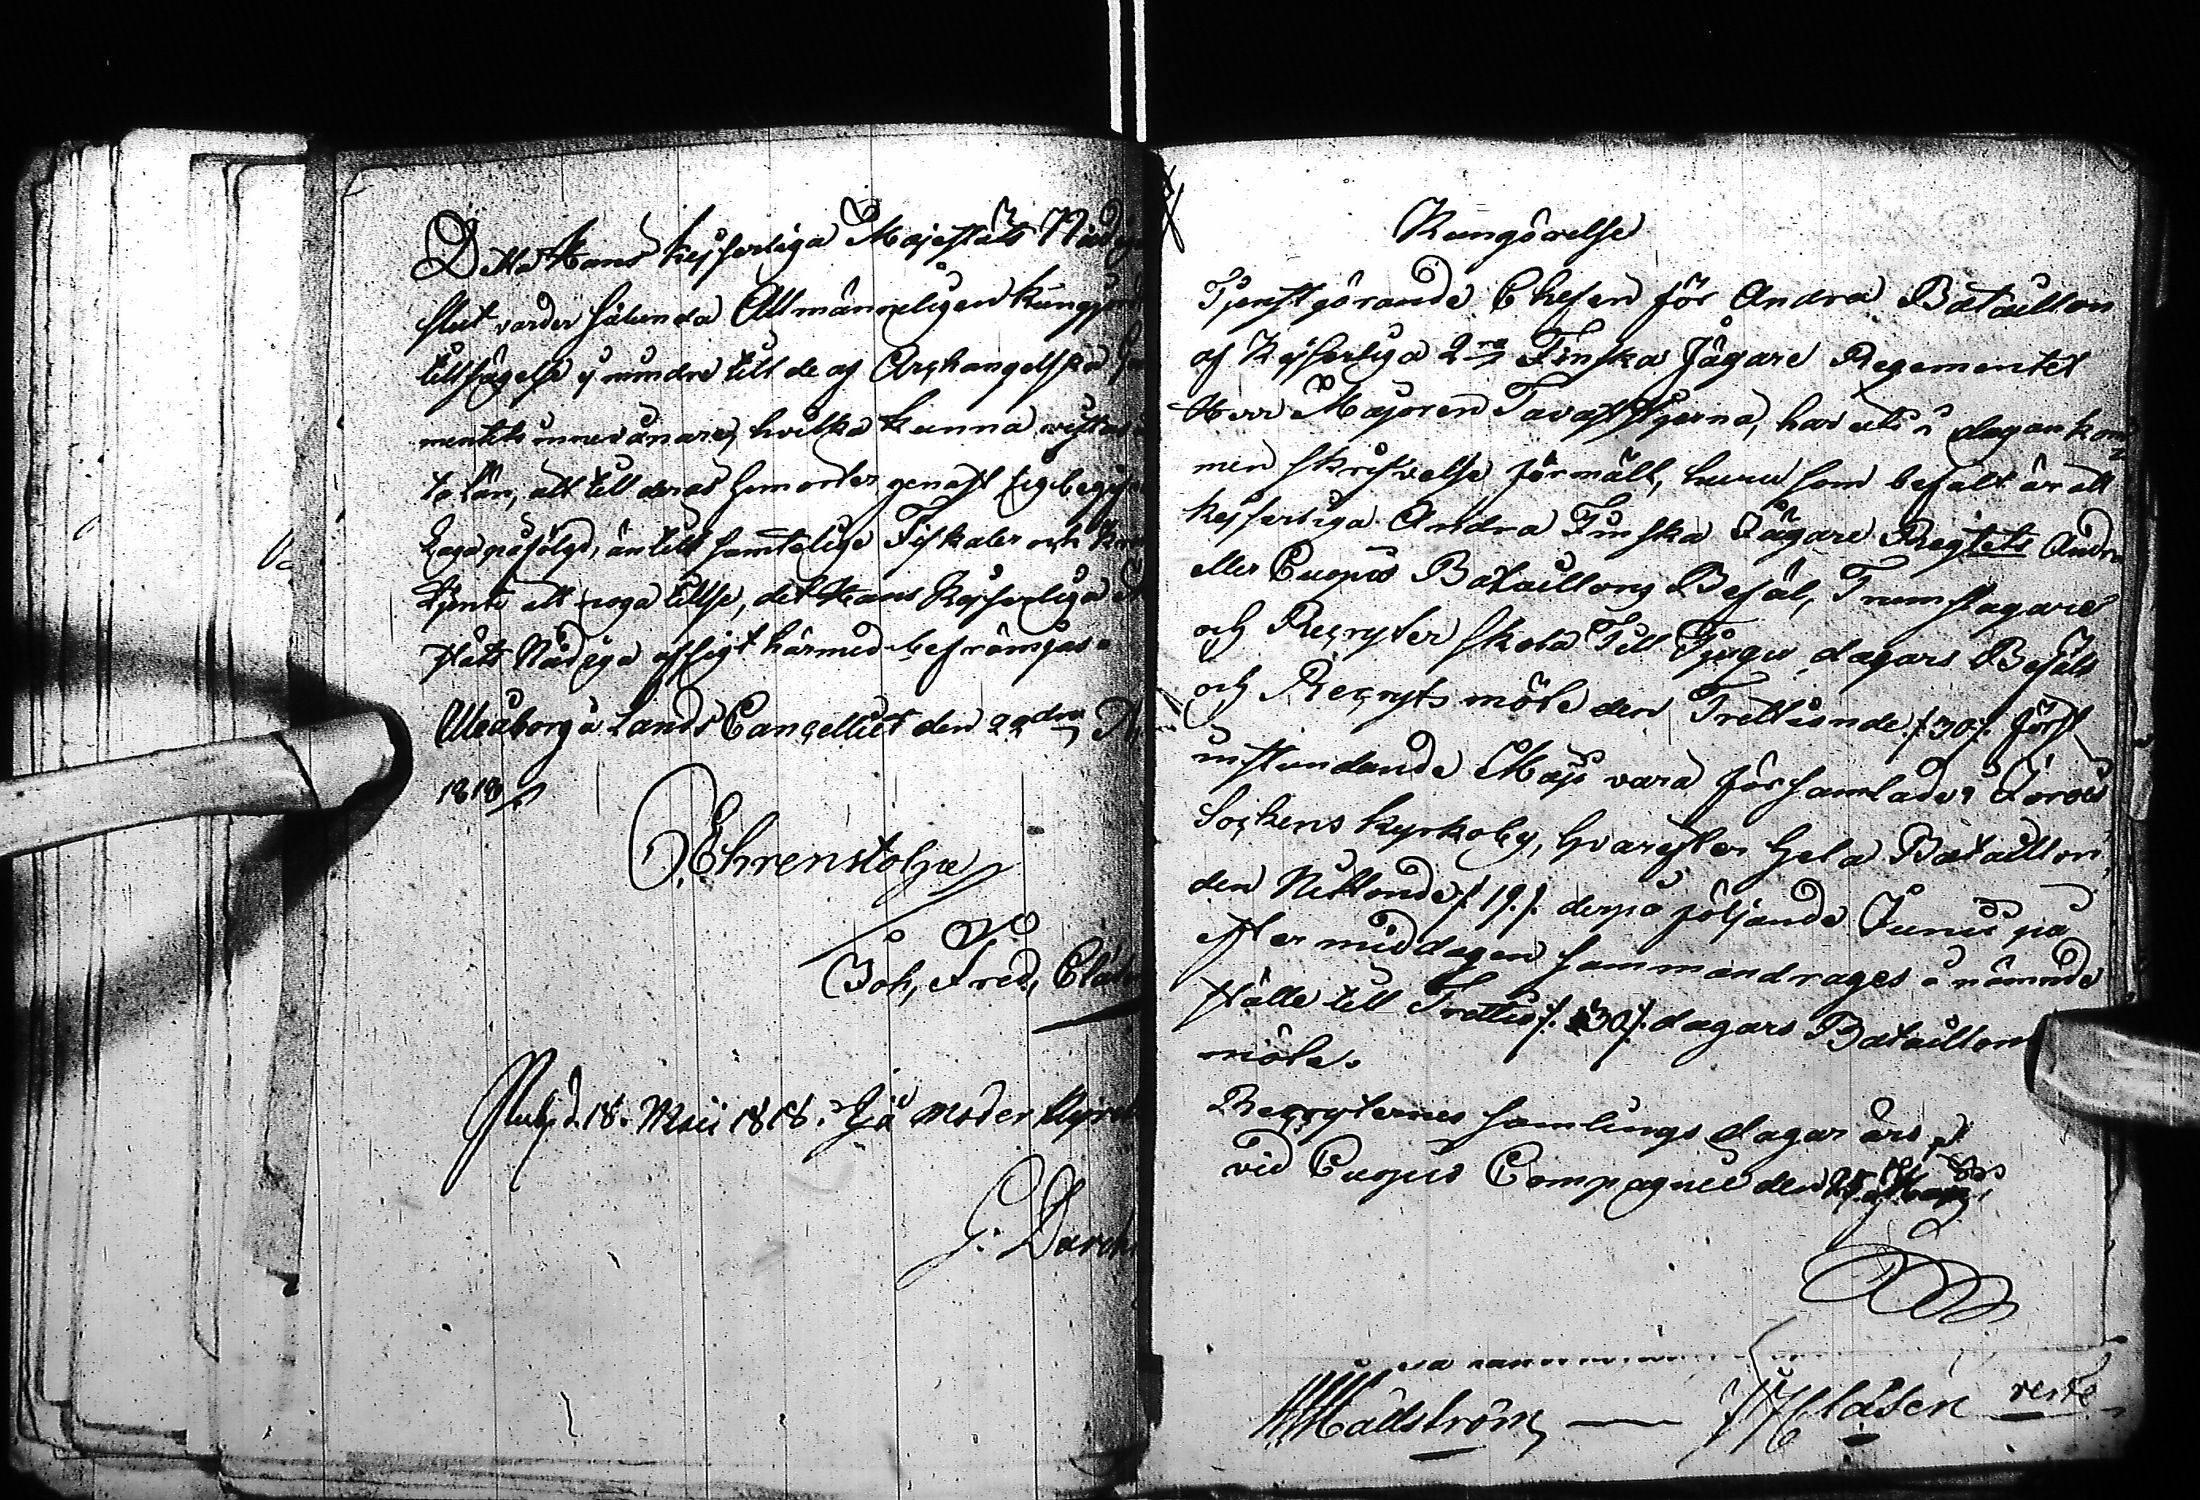 Detta Hans Kejserliga Majestäts Nådiga
slut varder sålunda Allmänneligen kungjor
till hägelse ej mindre till de af Archangelska
mentets innevånare, hvilka kunna vistas
ta län, att till deras hemorter genast sig begifva
Laga påföljd, än till samtelige Fiskaler och Kron
tjente att noga tillse, det Hans Kejserliga
stäts Nådiga afsigt härmed befrämjas.
Uleåborg å Lands Cancelliet den 22dra
1818
S. Ehrenstolpe
Joh, Fred, Clas
Publ d. 18. Maii 1818. i Moder Kyrk
G.
Kungörelse
Tjenstgörande Chefen för Andra Bataillon
af Kejserliga 2ra Finska Jägare Regementet
Herr Majoren Tavaststjerna, har uti i dag ankom
men skrifvelse förmält, huru som befalt är att
Kejserliga Andra Finska Jägare Regtets Andra
eller Cuopio Bataillons Befäl, Trumslagare
och Recryter skola Till Tjugu dagars Befäls
och Recryts möte den Trettionde /:30:/ först
instundande Maji vara församlade i Jorois
Sockens kyrkoby, hvarefter hela Bataillon
den Nittonde /:19:/ derpå följande Junii på
efter middagen sammandrages å nämnde
ställe till Trettio /:30:/ dagars Bataillons
möte.
Recryternes samlings dagar äro,
vid Cuopio Compagnie den
Hällström — Clasén